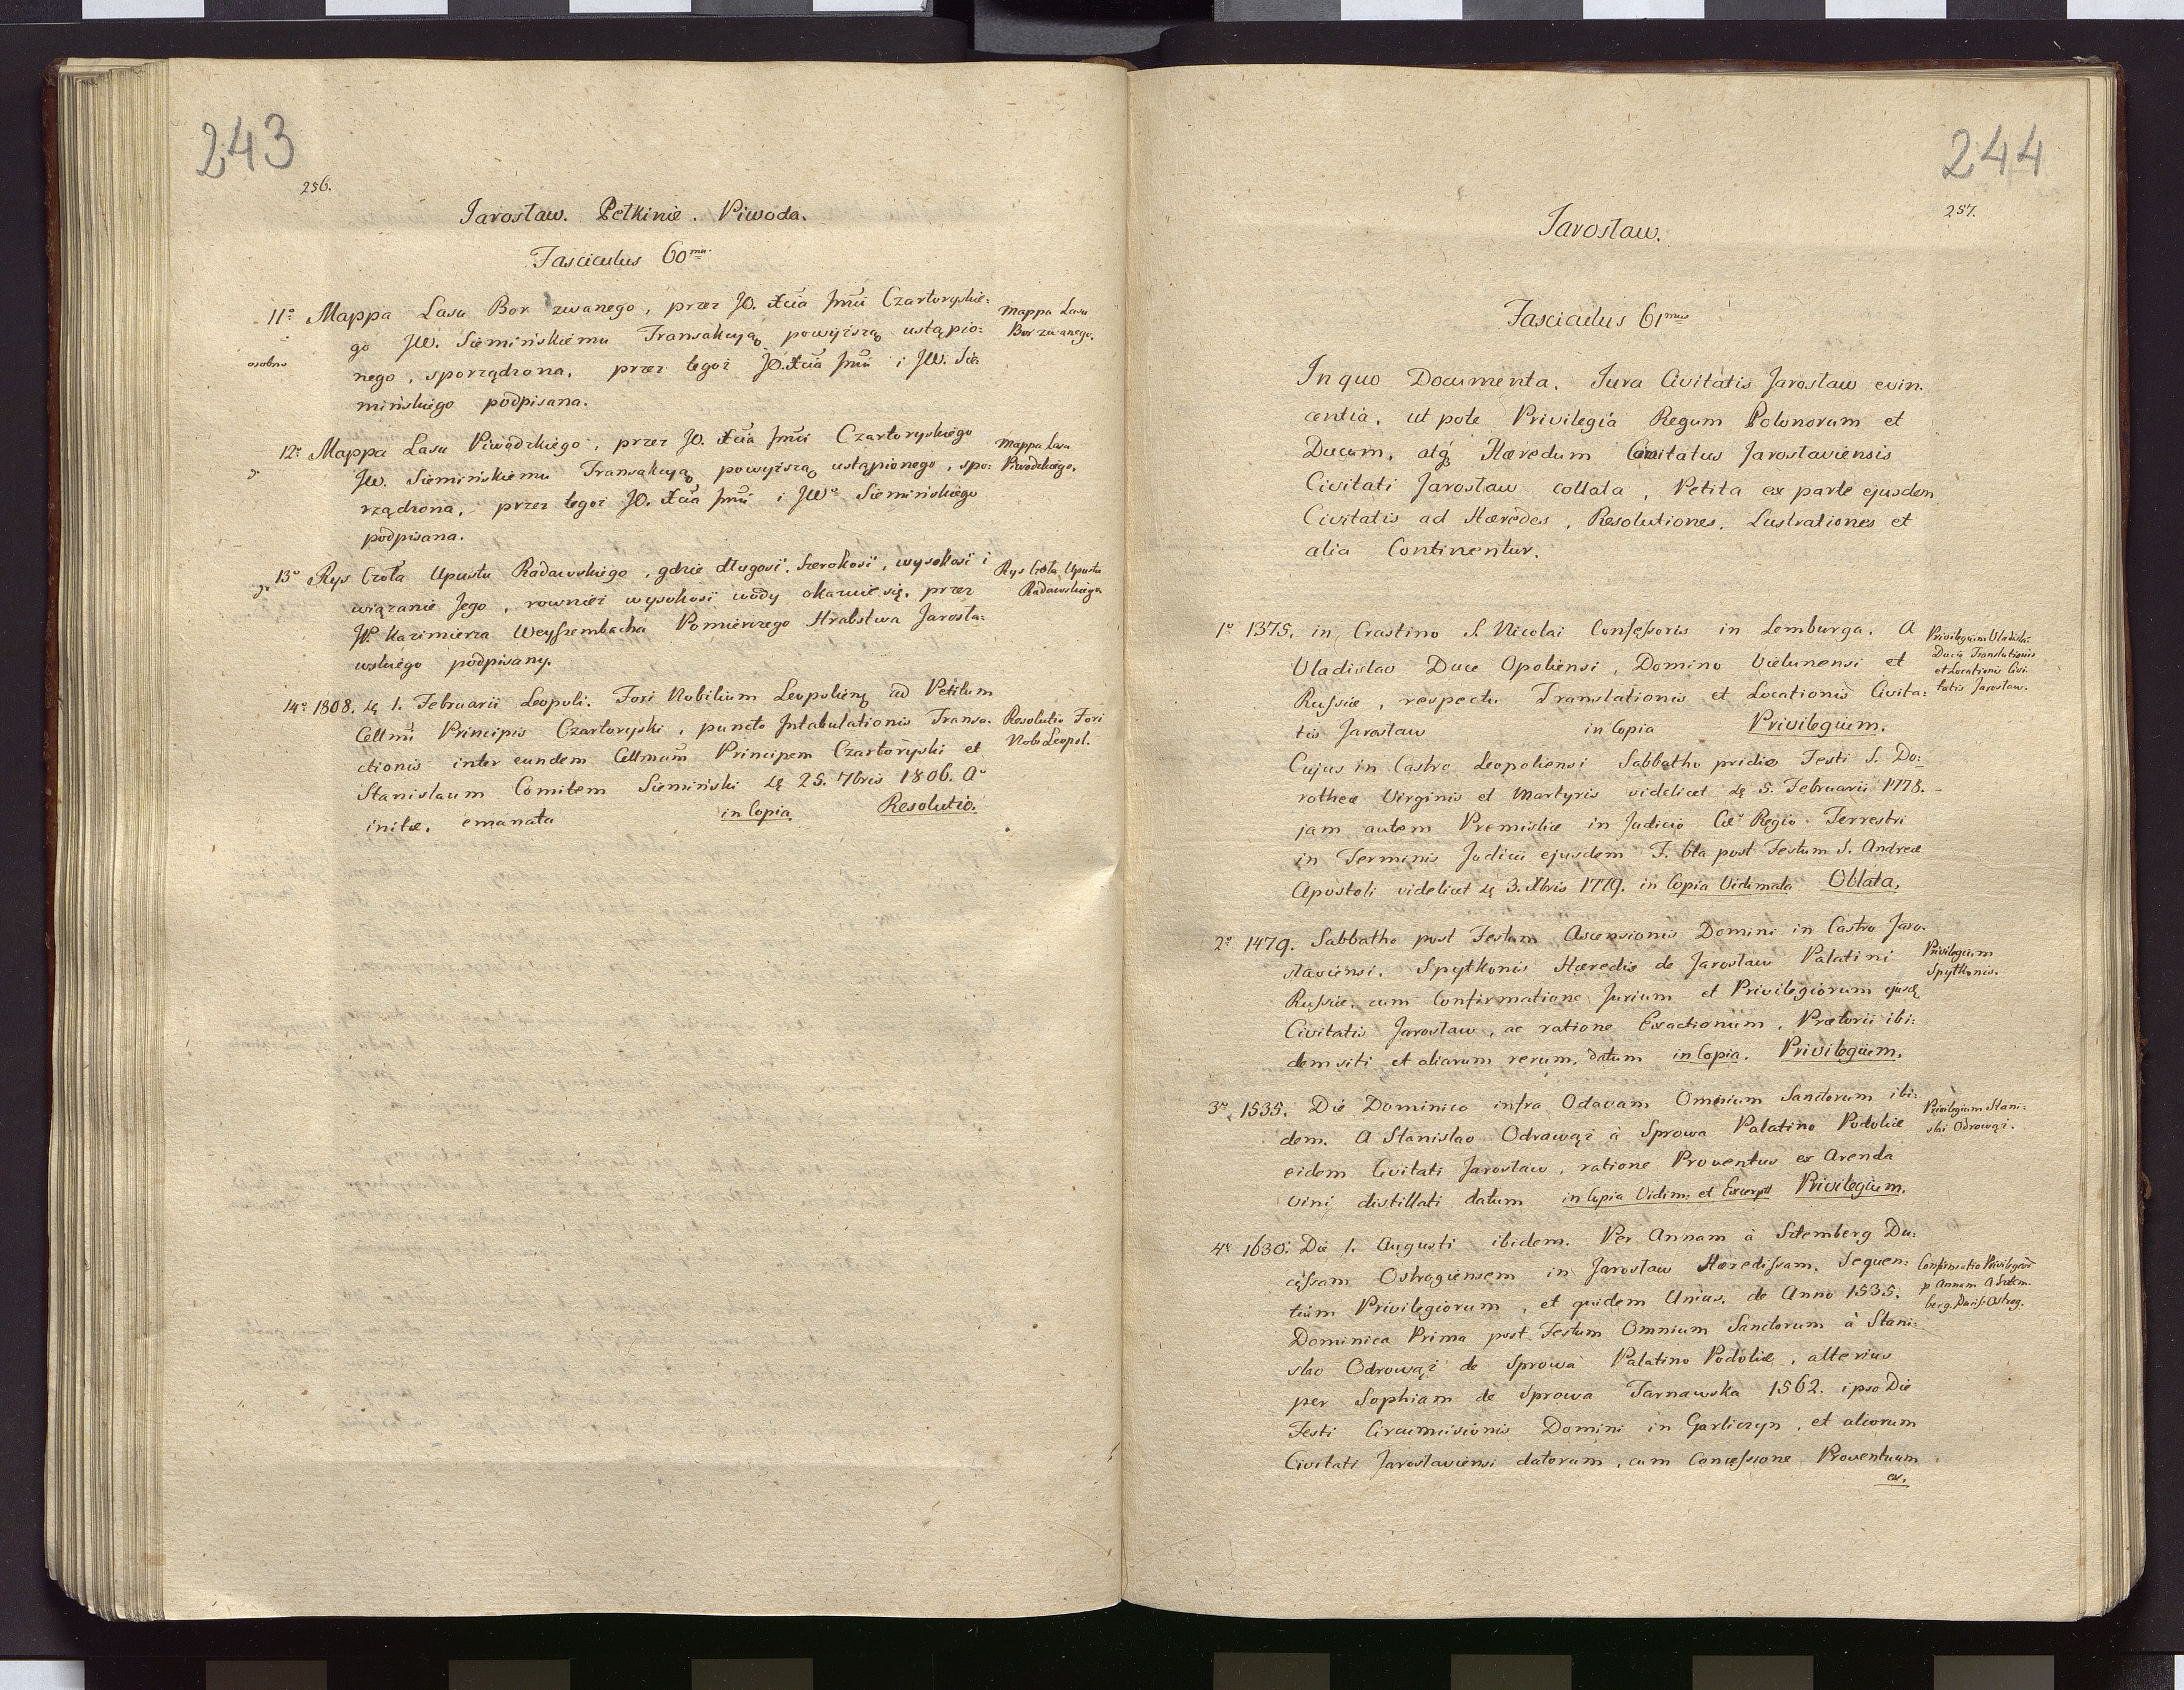 243
256.
Jarosław. Pełkinie. Piwoda.
Fasciculus 60mus.
11o Mappa Lasu Bor zwanego, przez JO. Xcia Jmci Czartoryskie=
go JW. Siemińskiemu Transakcyą powyższą ustąpio=
nego, sporządzona, przez tegoż JO. Xcia Jmci i JW. Sie=
mińskiego podpisana.
osobno
Mappa Lasu
Bor zwanego.
12o Mappa Lasu Piwodzkiego, przez JO. Xcia Jmci Czartoryskiego
JW. Siemińskiemu Transakcyą powyższą ustąpionego, spo=
rządzona, przez tegoż JO. Xcia Jmci i JWo Siemińskiego
podpisana.
Mappa Lasu
Piwodzkiego.
13o Rys Czoła Upustu Radawskiego, gdzie długość, szerokość, wysokość i
wiązanie Jego, rownież wysokość wody okazuie się, przez
JP. Kazimierza Weyssembacha Pomierczego Hrabstwa Jarosła=
wskiego podpisany.
Rys Czoła Upustu
Radawskiego.
14o 1808. dę 1. Februarii Leopoli. Fori Nobilium Leopolieng ad Petitum
Cellmi Principis Czartoryski, puncto Intabulationis Transa=
ctionis inter eundem Cellmum Principem Czartoryski et
Stanislaum Comitem Siemiński dę 25. 7bris 1806. Ao
initæ, emanata in Copia Resolutio.
Resolutio Fori
Nob: Leopol.
244
257.
Jarosław.
Fasciculus 61mus
In quo Documenta, Jura Civitatis Jarosław evin=
centia, ut pote Privilegia Regum Polonorum et
Ducum, atq3 Hæredum Comitatus Jaroslaviensis
Civitati Jarosław collata, Petita ex parte ejusdem
Civitatis ad Hæredes, Resolutiones, Lustrationes et
alia Continentur.
1o 1375. in Crastino S. Nicolai Confessoris in Lemburga. A
Vladislao Duce Opoliensi, Domino Vielunensi et
Russiæ, respectu Translationis et Locationis Civita=
tis Jarosław in Copia Privilegium.
Cujus in Castro Leopoliensi Sabbatho pridie Festi S. Do=
rotheæ Virginis et Martyris videlicet dę 5. Februarii 1778. -
jam autem Premisliæ in Judicio Cæo Regio Terrestri
in Terminis Judicii ejusdem F. 6ta post Festum S. Andreæ
Apostoli videlicet dę 3. Xbris 1779. in Copia Vidimata Oblata.
Privilegium Vladisla:
Ducis Translationis
et Locationis Civi:
tatis Jarosław.
2o 1479. Sabbatho post Festum Ascensionis Domini in Castro Jaro=
slaviensi. Spytkonis Hæredis de Jarosław Palatini
Russiæ, cum Confirmatione Jurium et Privilegiorum ejusdę
Civitatis Jarosław, ac ratione Exactionum, Prætorii ibi=
dem siti et aliarum rerum, datum in Copia. Privilegium.
Privilegium
Spytkonis.
3o 1535. Die Dominico infra Octavam Omnium Sanctorum ibi=
dem. A Stanislao Odrowąż à Sprowa Palatino Podoliæ
eidem Civitati Jarosław, ratione Proventus ex Arenda
vini distillati datum in Copia Vidim: et Excerpt Privilegium.
Privilegium Stani=
slai Odrowąż.
4o 1630. Die 1. Augusti ibidem. Per Annam à Sztemberg Du=
cissam Ostrogiensem in Jarosław Hæredissam. Sequen=
tium Privilegiorum, et quidem Unius, de Anno 1535.
Dominica Prima post Festum Omnium Sanctorum à Stani=
slao Odrowąż de Sprowa Palatino Podoliæ, alterius
per Sophiam de Sprowa Tarnawska 1562. ipso Die
Festi Circumcisionis Domini in Garliczyn, et aliorum
Civitati Jaroslaviensi datorum, cum Concessione Proventuum
ex.
Confirmatio Privilegiorũ
p Annam à Sztem=
berg. Ducis: Ostrog.